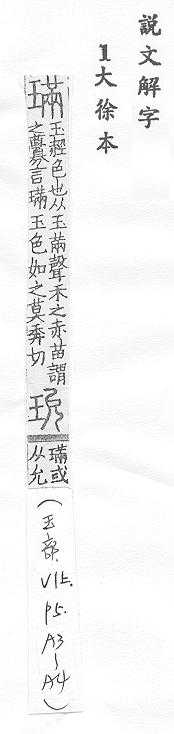 説文解字
1大徐本
璊
玉經色也从玉㒼聲禾之赤苗謂
之虋言璊玉色如之莫奔切
玧
璊或
从允
(玉部. V1上. P5. A3~A4)